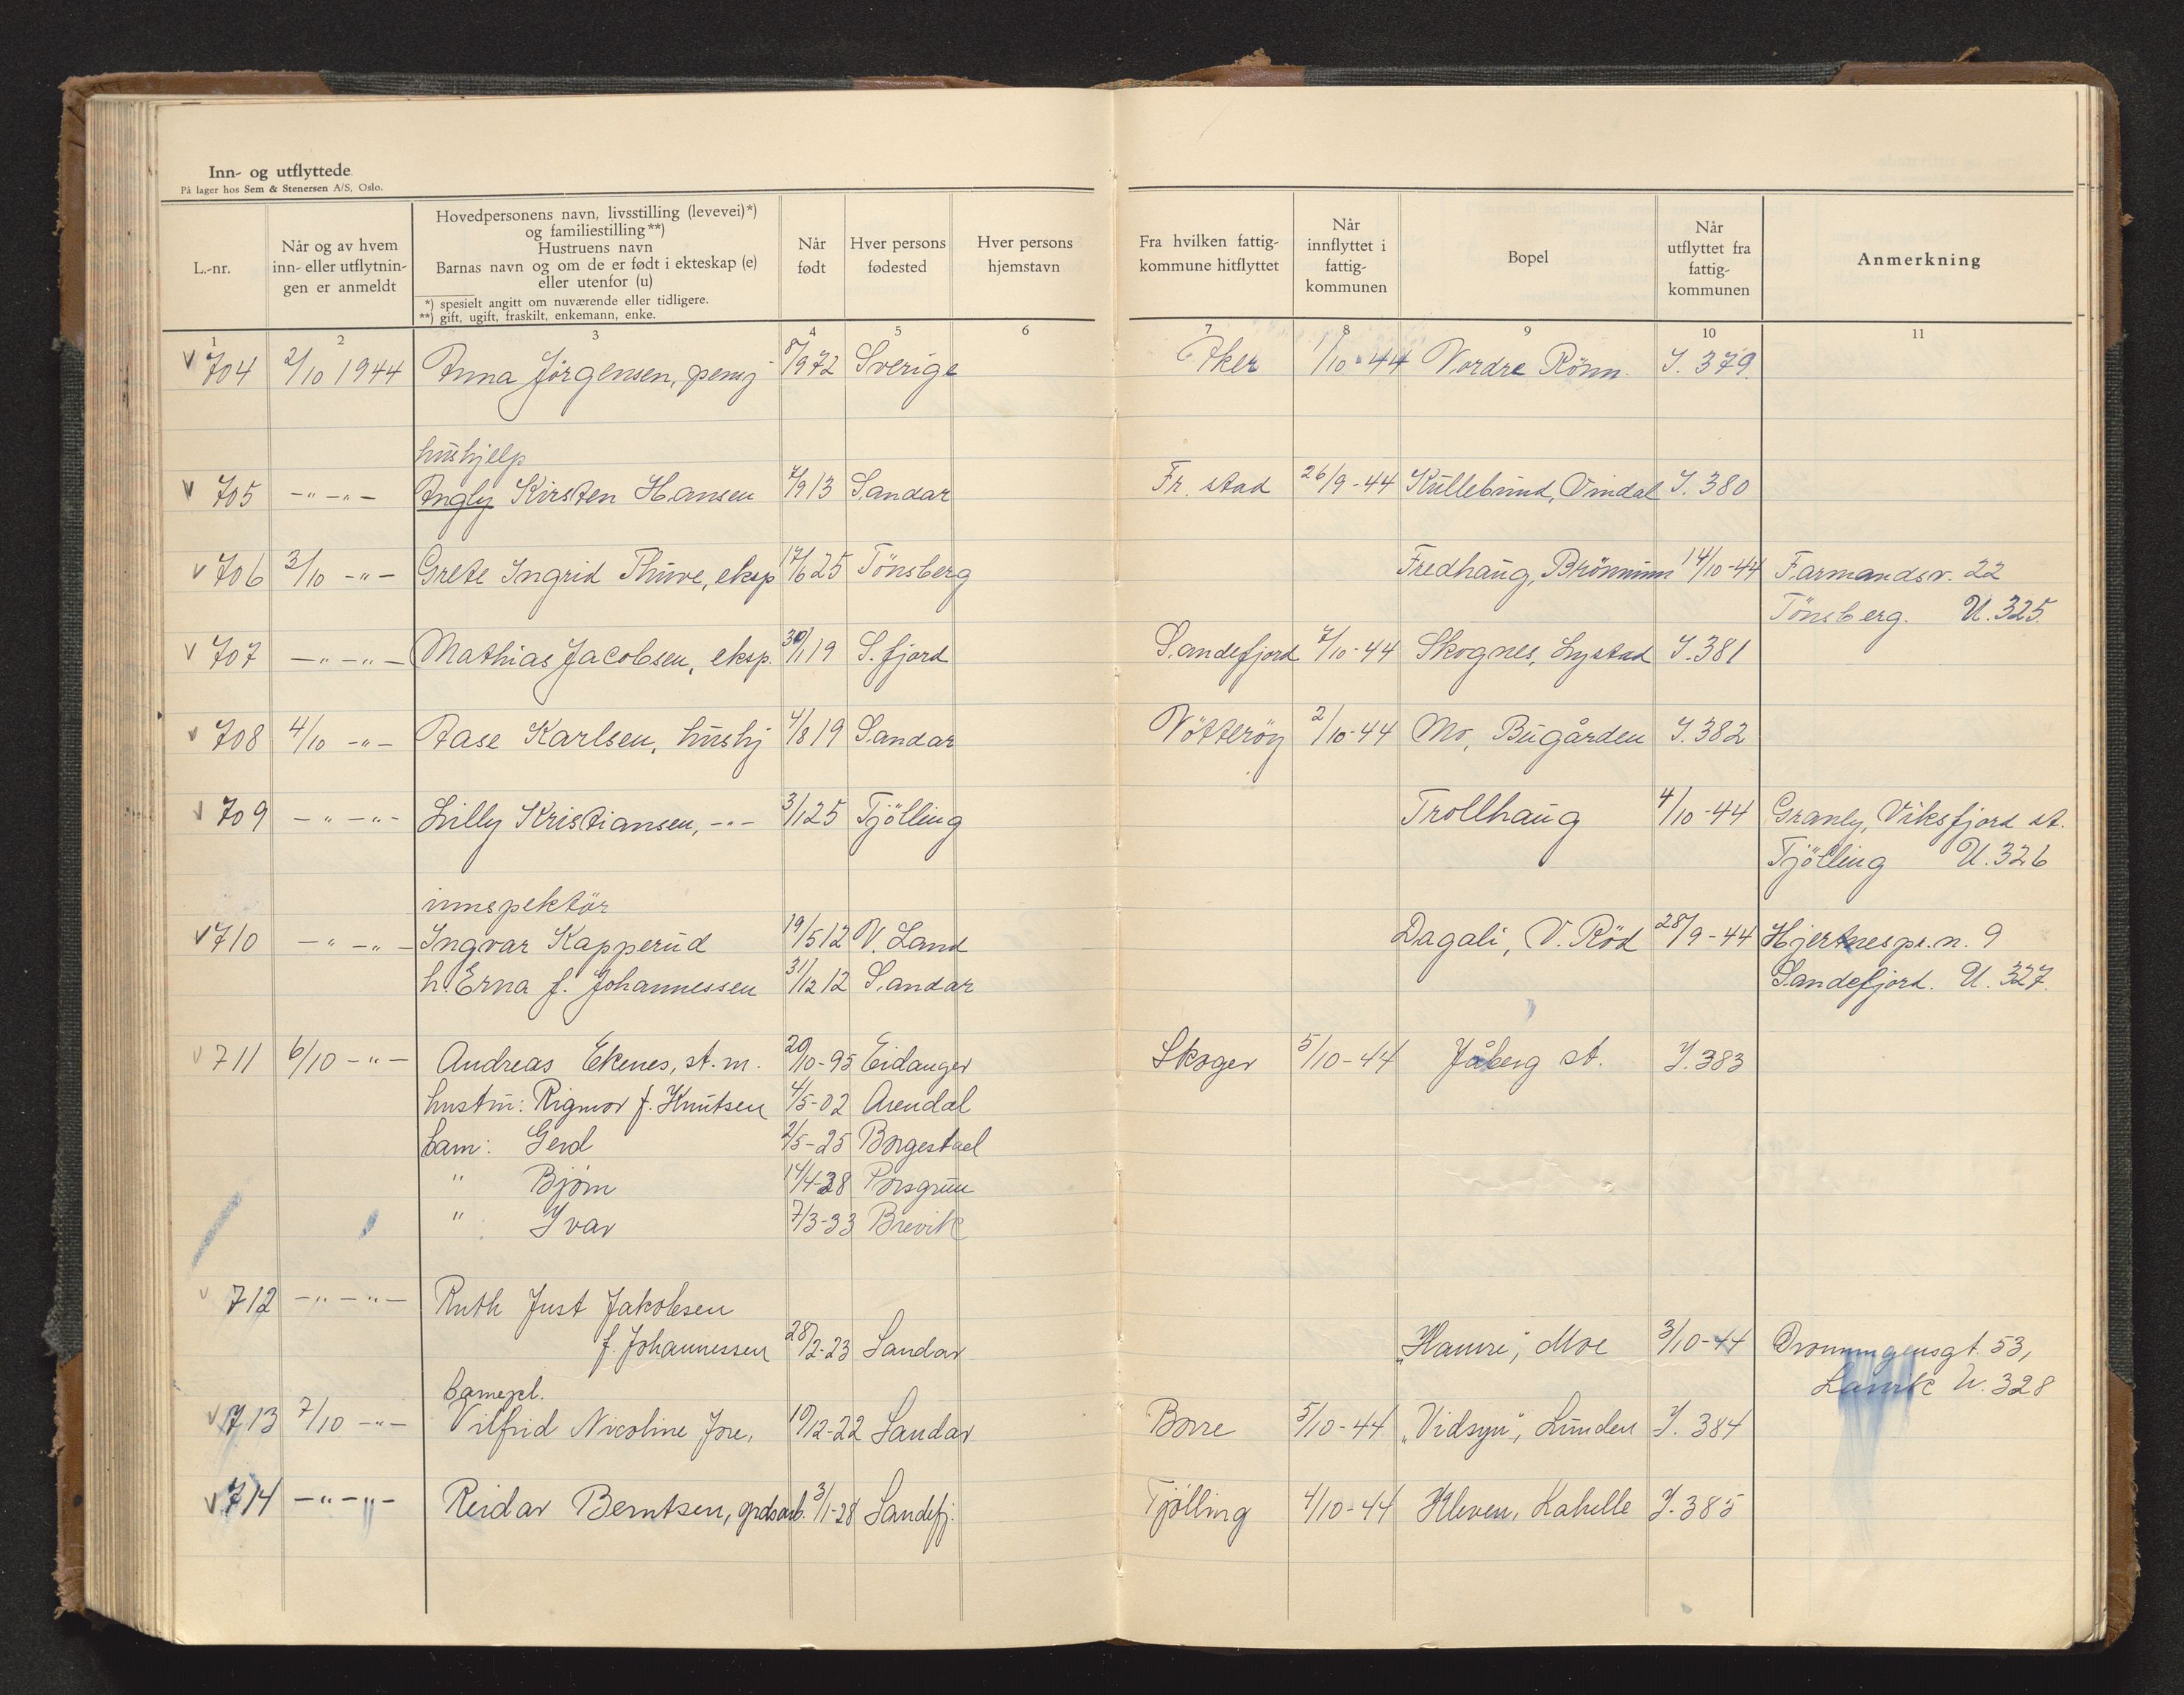 Inn- og utflyttede
På lager hos Sem & Stenersen A/S, Oslo.
L.-nr.
Når og av hvem
inn- eller utflytnin-
gen er anmeldt
Hovedpersonens navn, livsstilling (levevei)*)
og familiestilling**)
Hustruens navn
Barnas navn og om de er født i ekteskap (e)
eller utenfor (u)
*) spesielt angitt om nuværende eller tidligere.
**) gift, ugift, fraskilt, enkemann, enke.
Når
født
Hver persons
fødested
Hver persons
hjemstavn
Fra hvilken fattig-
kommune hitflyttet
Når
innflyttet i
fattig-
kommunen
Bopel
Når
utflyttet fra
fattig-
kommunen
Anmerkning
1 2 3 4 5 6 7 8 9 10 11
V 704 2/10 1944 Anna Jörgensen, pensj 8/9 72 Sverige Aker 1/10-44 Vordre Rönn. I. 379.
hushjelp
V 705 -"-"- Angly Kirsten Hansen 7/9 13 Sandar Fr. stad 26/9-44 Kullebund, Vindal I. 380
V 706 3/10 -"- Grete Ingrid Thuve, eksp 17/6 25 Tönsberg Fredhaug, Brönnum 14/10-44 Farmandsv. 22
Tönsberg. U. 325.
V 707 -"-"- Mathias Jacobsen, eksp. 30/1 19 S. fjord Sandefjord 7/10-44 Skognes, Lystad I. 381
V 708 4/10 -"- Aase Karlsen, hushj 4/8 19 Sandar Nötteröy 2/10-44 Mo, Bugården I. 382
V 709 -"-"- Lilly Kristiansen, -"- 3/1 25 Tjölling Trollhaug 4/10-44 Granly, Viksfjord st.
Tjölling U. 326
innspektör
V 710 -"-"- Ingvar Kapperud 19/5 12 V. Land Dagali, V. Röd 28/9-44 Hjertnespr.n. 9
h. Erna f. Johannessen 31/12 12 Sandar Sandefjord. U. 327.
V 711 6/10 -"- Andreas Ekenes, st. m. 20/10-95 Eidanger Skoger 5/10-44 Jåberg st. I. 383
hustru: Rigmor f. Knutsen 4/5-02 Arendal
barn: Gerd 2/5-25 Borgestad
" Bjørn 14/4-28 Porsgrun
" Ivar 7/3-33 Brevik
V 712 -"-"- Ruth Just Jakobsen
f. Johannessen 28/2-23 Sandar "Hamri", Moe 3/10-44 Dronningensgt. 53,
Larvik U. 328
barnepl.
V 713 7/10 -"- Vilfrid Nicoline Jore, 10/12-22 Sandar Borre 5/10-44 "Vidsyn", Lunden I. 384
V 714 -"-"- Reidar Berntsen, grdsarb. 3/1-28 Sandefj. Tjölling 4/10-44 Kleven, Kahelle I. 385